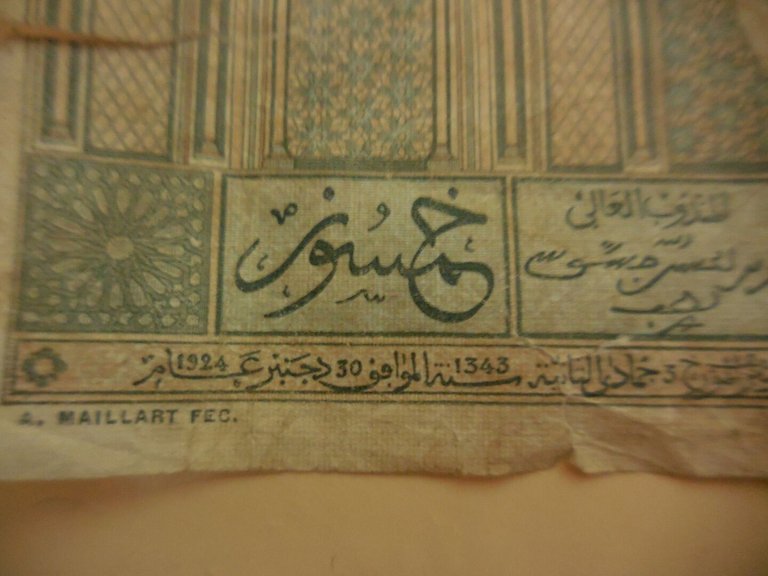 خمسون
المندوب العالي
3 جمادى الثانية سنة 1343 الموافق 30 دجنبر عام 1924
A. MAILLART FEC.